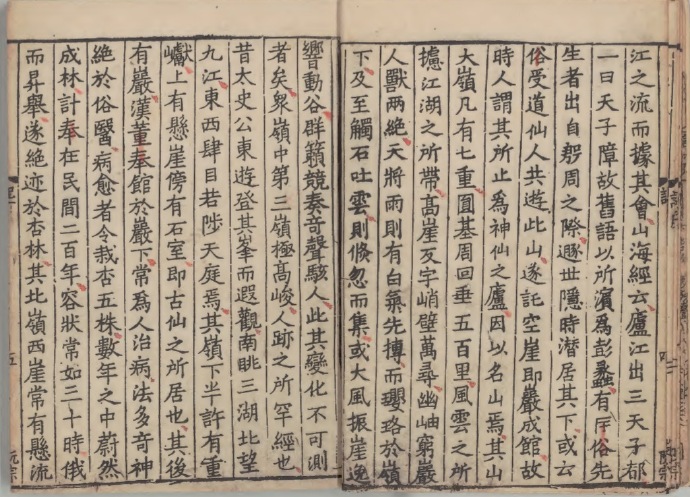 江之流而據其會山海經云廬江出三天子都
一曰天子障故舊語以所濱為彭蠡有匡俗先
生者出自殷周之際遯世隱時潛居其下或云
俗受道仙人共遊此山遂託空崖即巖成館故
時人謂其所止為神仙之廬因以名山焉其山
大嶺凡有七重圓基周回垂五百里風雲之所
攄江湖之所帶高崖反宇峭壁萬尋幽岫窮巖
人獸兩絕天將雨則有白氣先搏而瓔珞於嶺
下及至觸石吐雲則倏忽而集或大風振崖逸
響動谷群籟競奏奇聲駭人此其變化不可測
者矣衆嶺中第三嶺極高峻人跡之所罕經也
昔太史公東遊登其峯而遐觀南眺三湖北望
九江東西肆目若陟天庭焉其嶺下半許有重
巘上有懸崖傍有石室即古仙之所居也其後
有巖漢董奉館於巖下常為人治病法多奇神
絕於俗醫病愈者令栽杏五株數年之中蔚然
成林計奉在民間二百年容狀常如三十時俄
而昇舉遂絕迹於杏林其北嶺西崖常有懸流
五